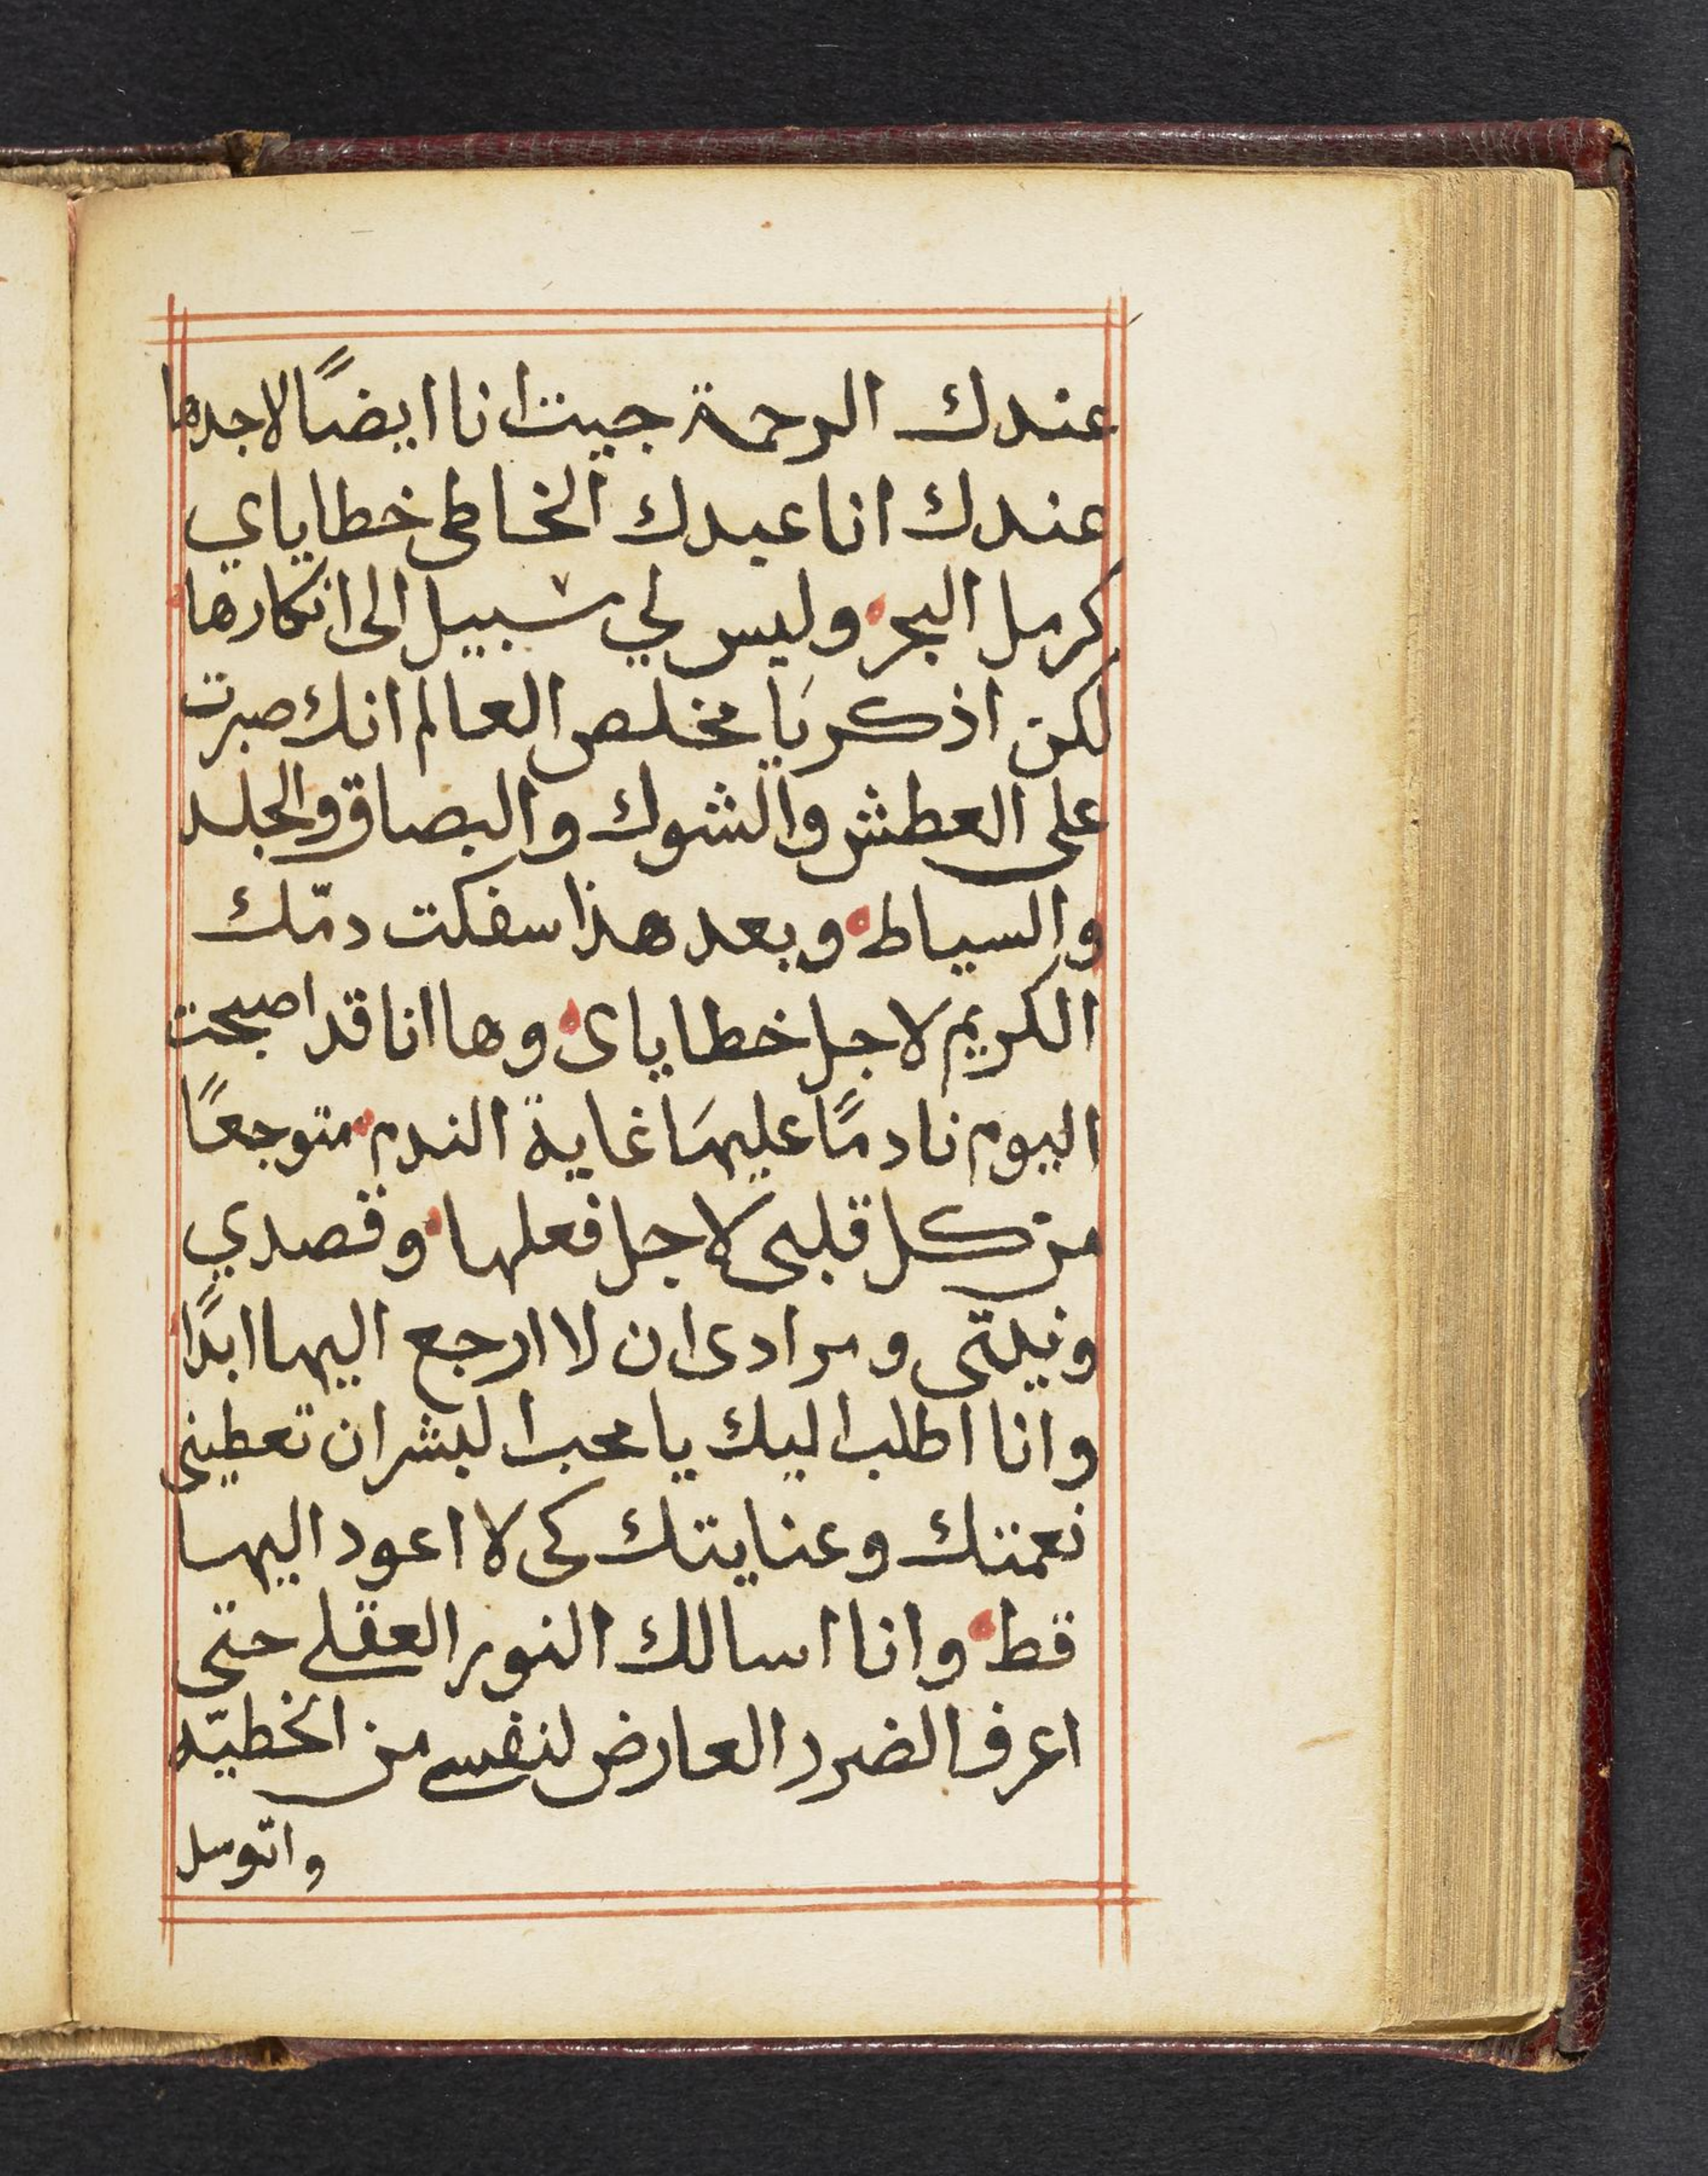 عندك الرحمة جيت انا ايضًا لاجدها
عندك انا عبدك الخاطى خطاياي
كرمل البحر وليس لي سبيل الى انكارها
لكن اذكر يا مخلص العالم انك صبرت
على العطش والشوك والبصاق والجلد
والسياط وبعد هذا سفكت دمّك
الكريم لاجل خطاياى وها انا قد اصبحت
اليوم نادمًا عليها غاية الندم متوجعًا
من كل قلبى لاجل فعلها وقصدي
ونيتى ومرادى ان لا ارجع اليها ابدًا
وانا اطلب اليك يا محب البشر ان تعطينى
نعمتك وعنايتك كى لا اعود اليها
قط وانا اسالك النور العقلي حتى
اعرف الضرر العارض لنفسي من الخطيّه
واتوسل